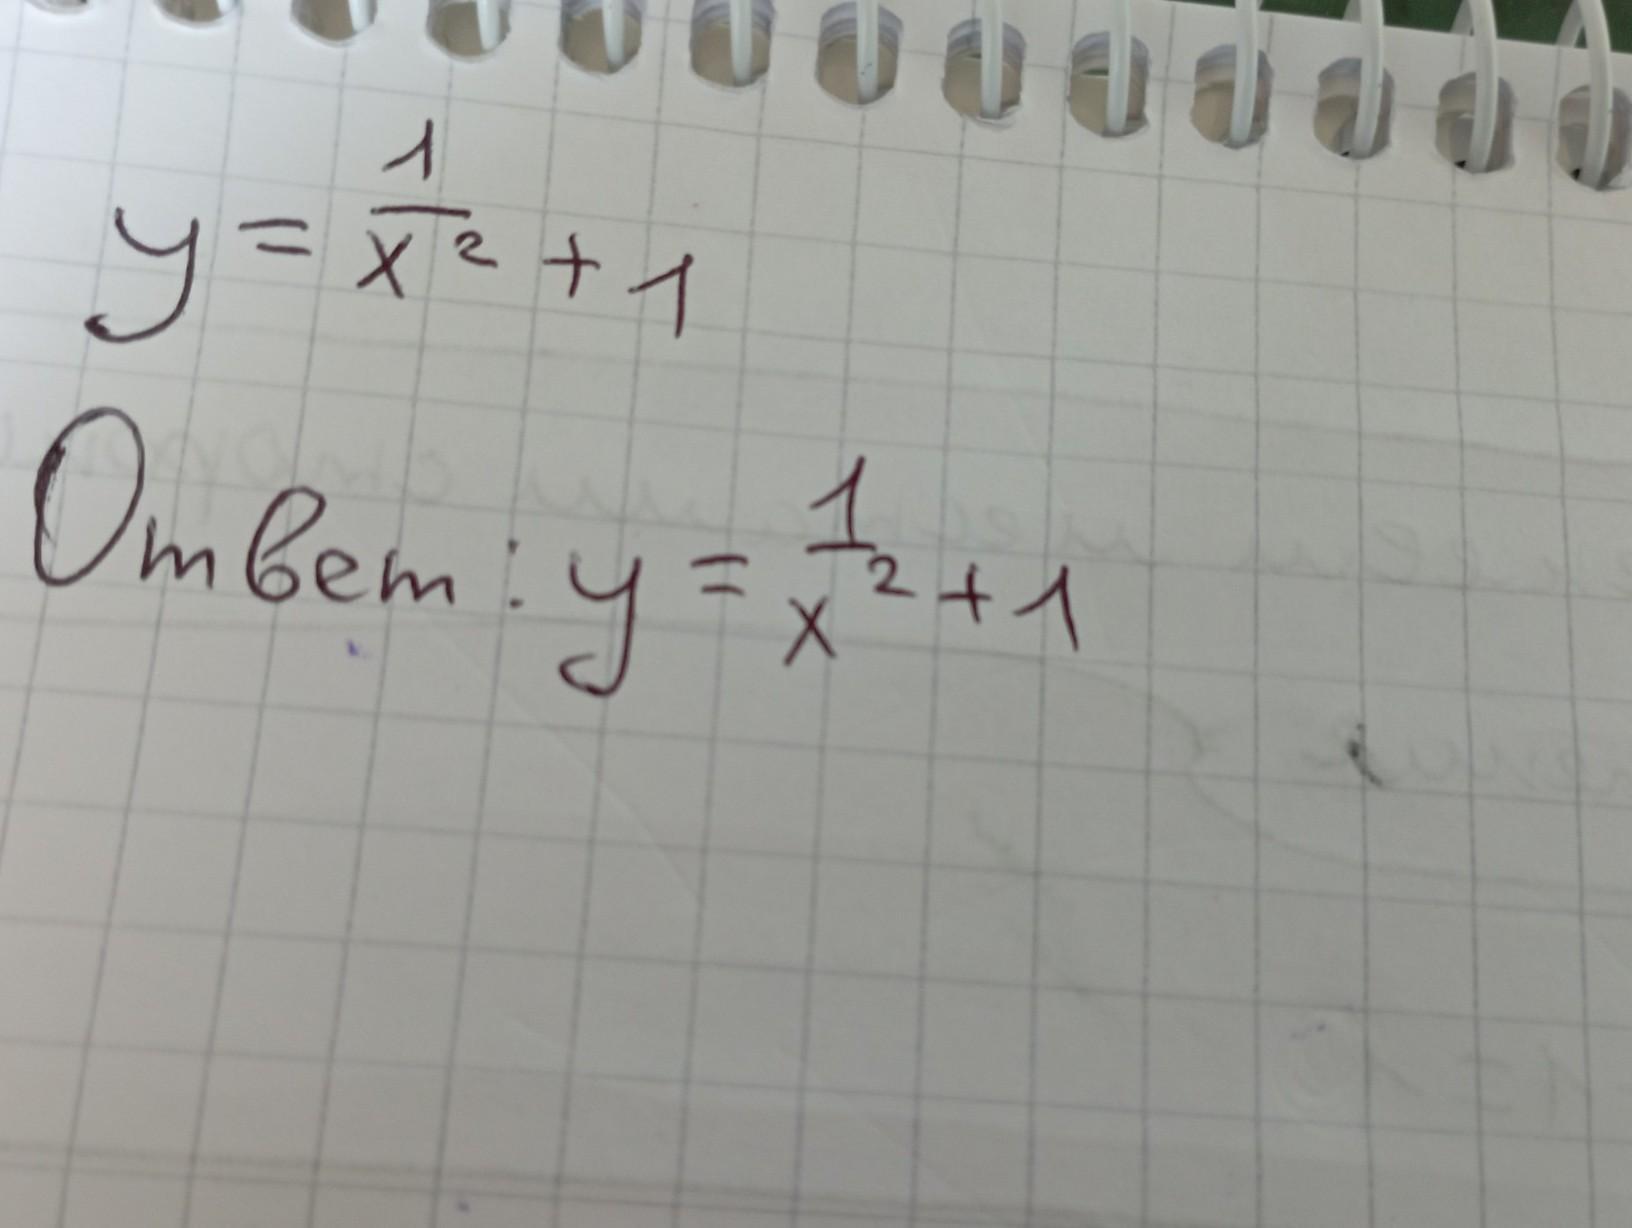 y = 1/x² + 1
Ответ: y = 1/x² + 1